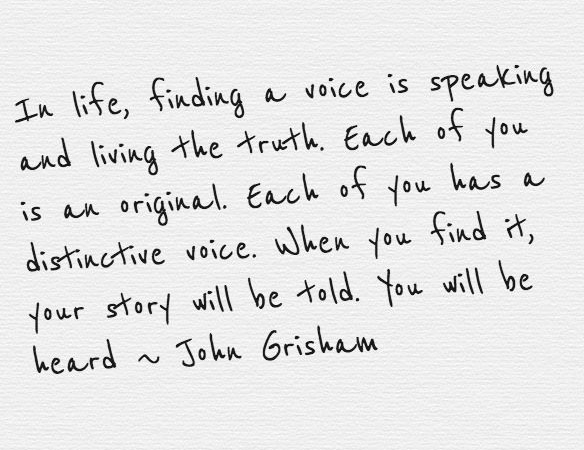 In life, finding a voice is speaking
and living the truth. Each of you
is an original. Each of you has a
distinctive voice. When you find it,
your story will be told. You will be
heard ~ John Grisham